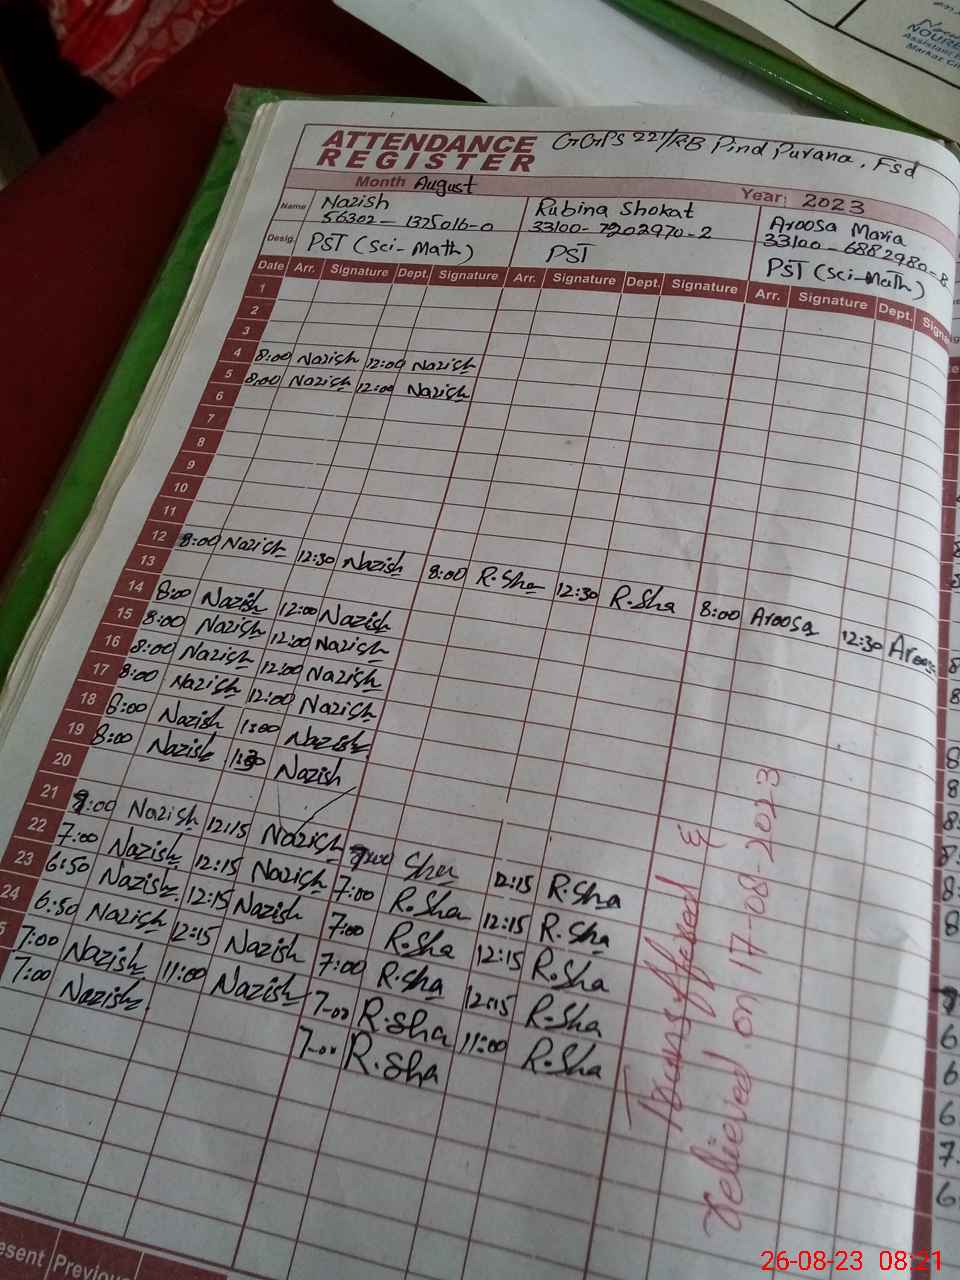 ATTENDANCE REGISTER GGPS 221/RB Pind Purana, Fsd
Month August Year: 2023
Name Nazish Rubina Shokat Aroosa Maria
56302-1375016-0 33100-7202970-2 33100-6882980-8
Desig. PST (Sci-Math) PST PST (Sci-Math)
Date Arr. Signature Dept. Signature Arr. Signature Dept. Signature Arr. Signature Dept. Signa
1
2
3
4 8:00 Nazish 12:00 Nazish
5 8:00 Nazish 12:00 Nazish
6
7
8
9
10
11
12 8:00 Nazish 12:30 Nazish 8:00 R.Sha 12:30 R.Sha 8:00 Aroosa 12:30 Aroosa
13
14 8:00 Nazish 12:00 Nazish
15 8:00 Nazish 12:00 Nazish
16 8:00 Nazish 12:00 Nazish
17 8:00 Nazish 12:00 Nazish
18 8:00 Nazish 1:00 Nazish
19 8:00 Nazish Nazish
20
21 :00 Nazish 12:15 Nazish Sha 12:15 R.Sha
22 7:00 Nazish 12:15 Nazish 7:00 R.Sha 12:15 R.Sha
23 6:50 Nazish 12:15 Nazish 7:00 R.Sha 12:15 R.Sha
24 6:50 Nazish 12:15 Nazish 7:00 R.Sha 12:15 R.Sha
5 7:00 Nazish 11:00 Nazish 7-00 R.Sha 11:00 R.Sha
7:00 Nazish 7-00 R.Sha
Transffered &
relieved on 17-08-2023
esent Previous
26-08-23 08:21